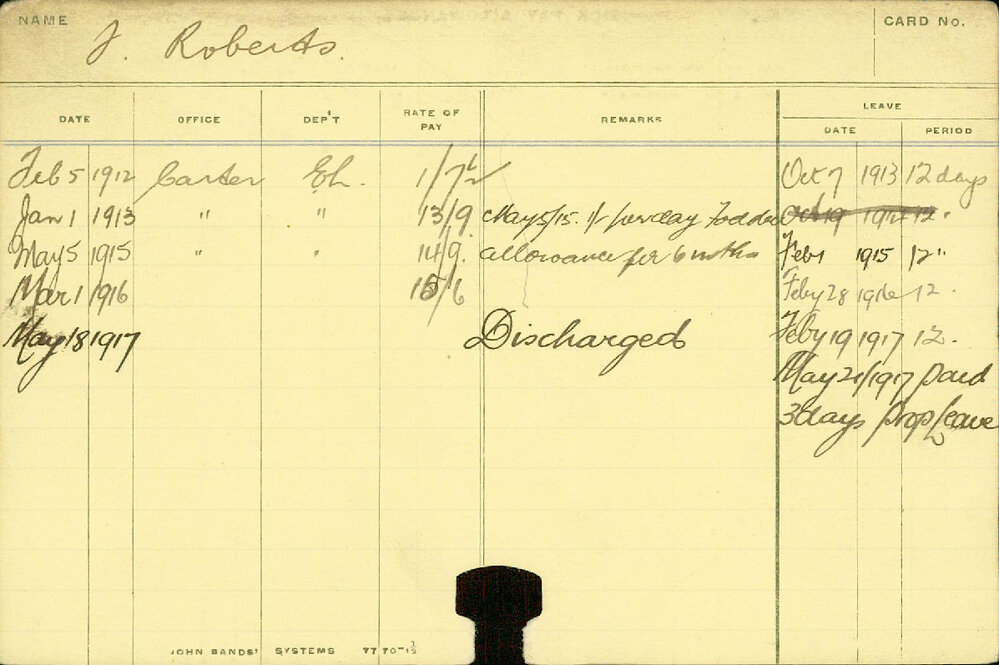 NAME J. Roberts. CARD No.
DATE OFFICE DEP'T RATE OF PAY REMARKS LEAVE
DATE PERIOD
Feb 5 1912 Carter Eh. 1/7½ Oct 7 1913 12 days
Jan 1 1913 " " 13/9 May 5/15. 1/- per day Fodder Oct 19 1914 12 "
May 5 1915 " " 14/9. allowance for 6 mths Feb 1 1915 12 "
Mar 1 1916 15/6 Feby 28 1916 12 .
May 18 1917 Discharged Feby 19 1917 12 .
May 21/1917 paid
3 days prop leave
JOHN SANDS' SYSTEMS